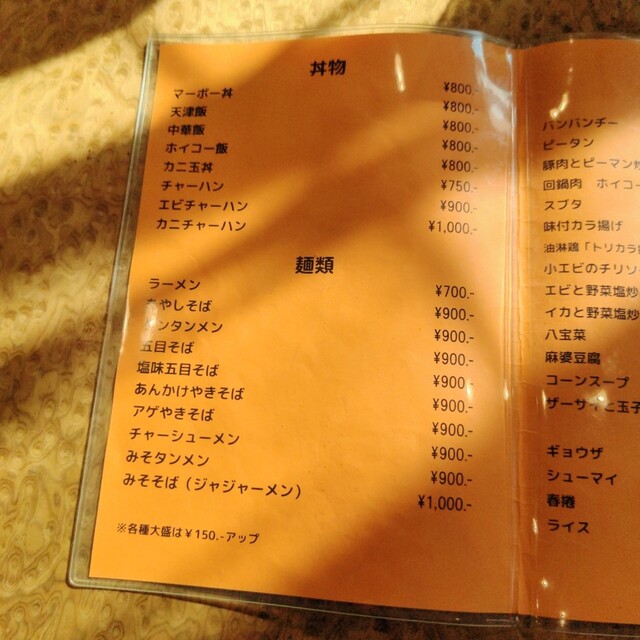 丼物
マーボー丼 ¥800.-
天津飯 ¥800.-
中華飯 ¥800.-
ホイコー飯 ¥800.-
カニ玉丼 ¥800.-
チャーハン ¥750.-
エビチャーハン ¥900.-
カニチャーハン ¥1,000.-
麺類
ラーメン ¥700.-
もやしそば ¥900.-
ンタンメン ¥900.-
五目そば ¥900.-
塩味五目そば ¥900.-
あんかけやきそば ¥900.-
アゲやきそば ¥900.-
チャーシューメン ¥900.-
みそタンメン ¥900.-
みそそば（ジャジャーメン） ¥1,000.-
※各種大盛は￥150.-アップ
バンバンチー
ピータン
豚肉とピーマン炒
回鍋肉　ホイコー
スブタ
味付カラ揚げ
油淋鶏「トリカラ
小エビのチリソ
エビと野菜塩炒
イカと野菜塩炒
八宝菜
麻婆豆腐
コーンスープ
ザーサイと玉子
ギョウザ
シューマイ
春捲
ライス